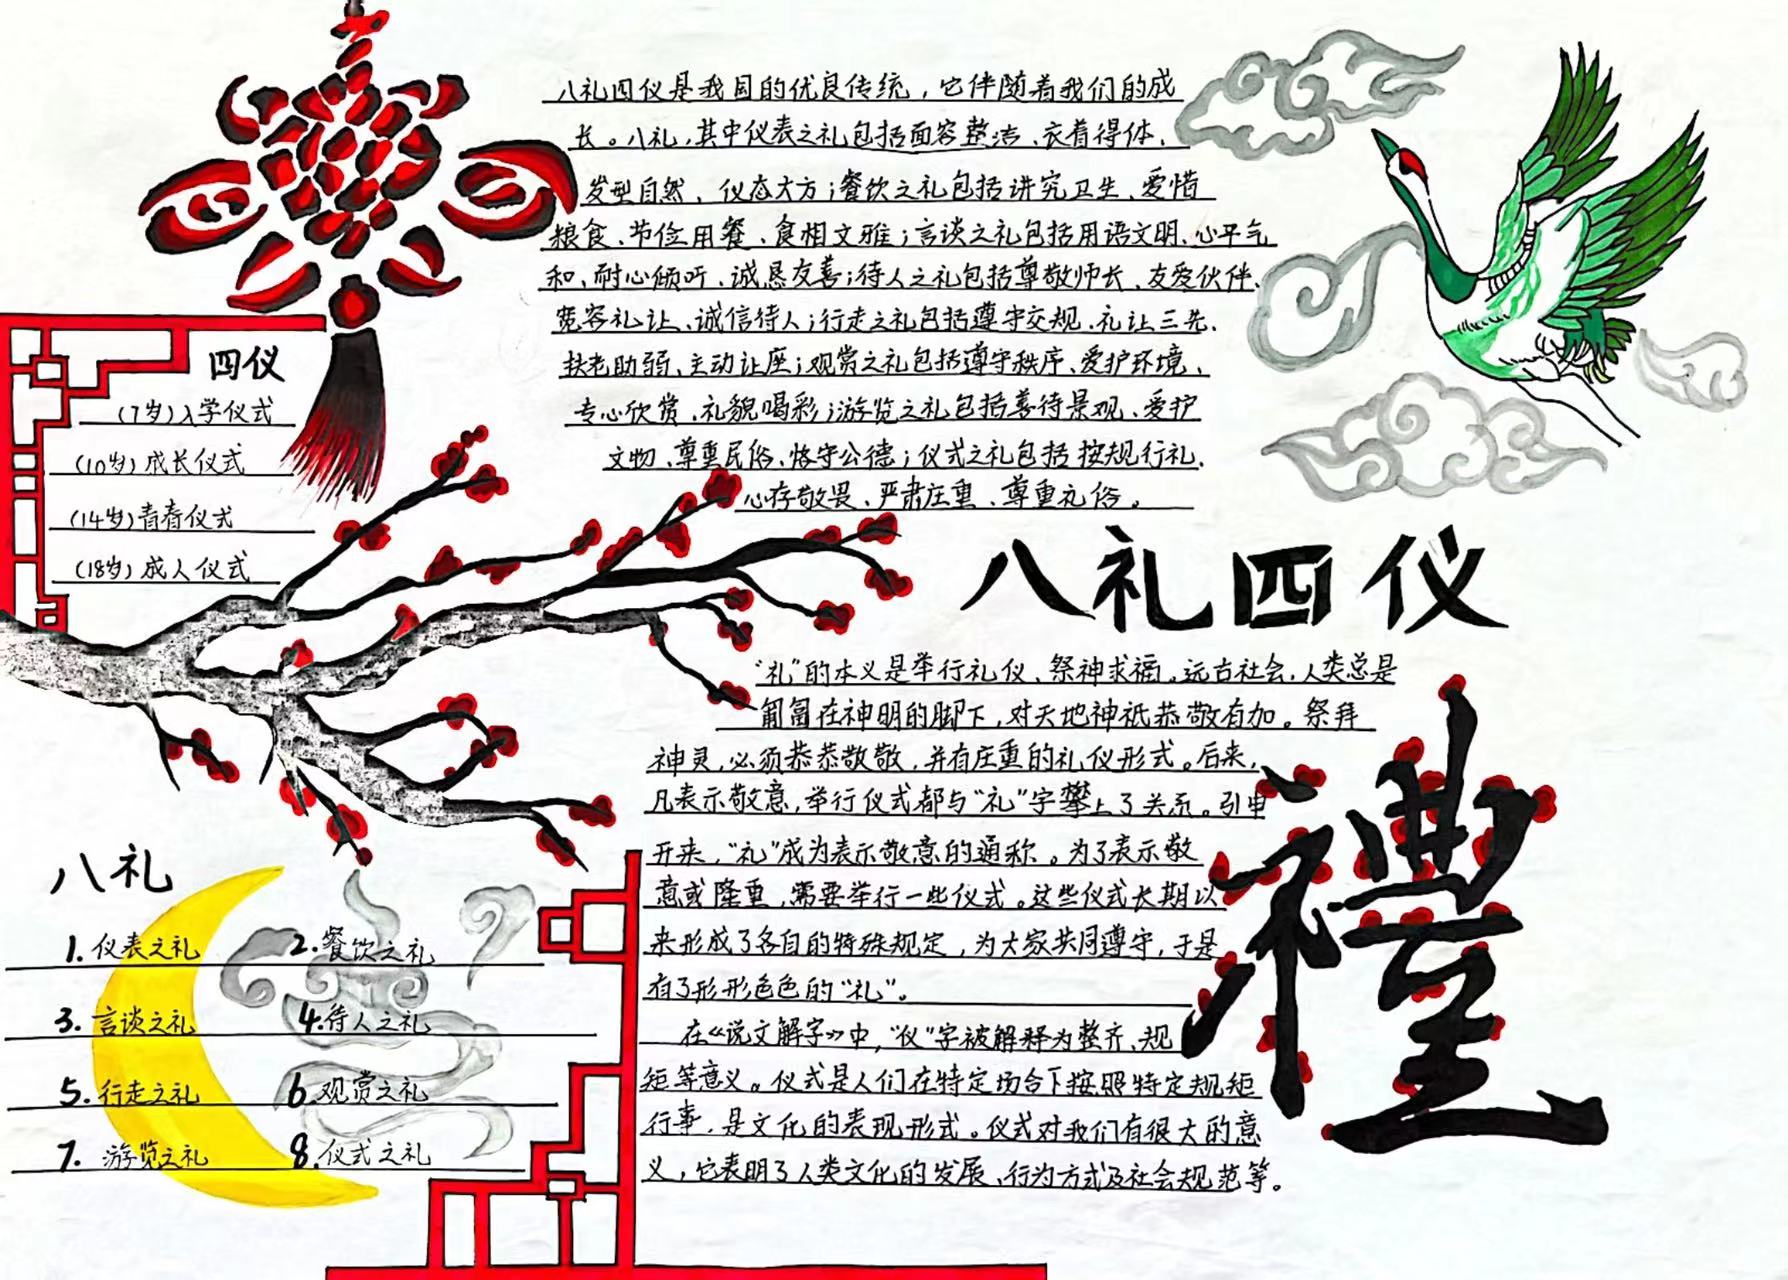 八礼四仪是我国的优良传统，它伴随着我们的成
长。八礼，其中仪表之礼包括面容整洁、衣着得体、
发型自然、仪态大方；餐饮之礼包括讲究卫生、爱惜
粮食、节俭用餐、食相文雅；言谈之礼包括用语文明、心平气
和、耐心倾听、诚恳友善；待人之礼包括尊敬师长、友爱伙伴、
宽容礼让、诚信待人；行走之礼包括遵守交规、礼让三先、
扶老助弱、主动让座；观赏之礼包括遵守秩序、爱护环境、
专心欣赏、礼貌喝彩；游览之礼包括善待景观、爱护
文物、尊重民俗、恪守公德；仪式之礼包括按规行礼、
心存敬畏、严肃庄重、尊重礼俗。
四仪
(7岁)入学仪式
(10岁)成长仪式
(14岁)青春仪式
(18岁)成人仪式
八礼四仪
"礼"的本义是举行礼仪、祭神求福。远古社会，人类总是
匍匐在神明的脚下，对天地神祇恭敬有加。祭拜
神灵，必须恭恭敬敬，并有庄重的礼仪形式。后来，
凡表示敬意，举行仪式都与"礼"字攀上了关系。引申
开来，"礼"成为表示敬意的通称。为了表示敬
意或隆重，需要举行一些仪式。这些仪式长期以
来形成了各自的特殊规定，为大家共同遵守，于是
有了形形色色的"礼"。
在《说文解字》中，"仪"字被解释为整齐、规
矩等意义。仪式是人们在特定场合下按照特定规矩
行事，是文化的表现形式。仪式对我们有很大的意
义，它表明了人类文化的发展、行为方式及社会规范等。
禮
八礼
1. 仪表之礼 2. 餐饮之礼
3. 言谈之礼 4. 待人之礼
5. 行走之礼 6. 观赏之礼
7. 游览之礼 8. 仪式之礼